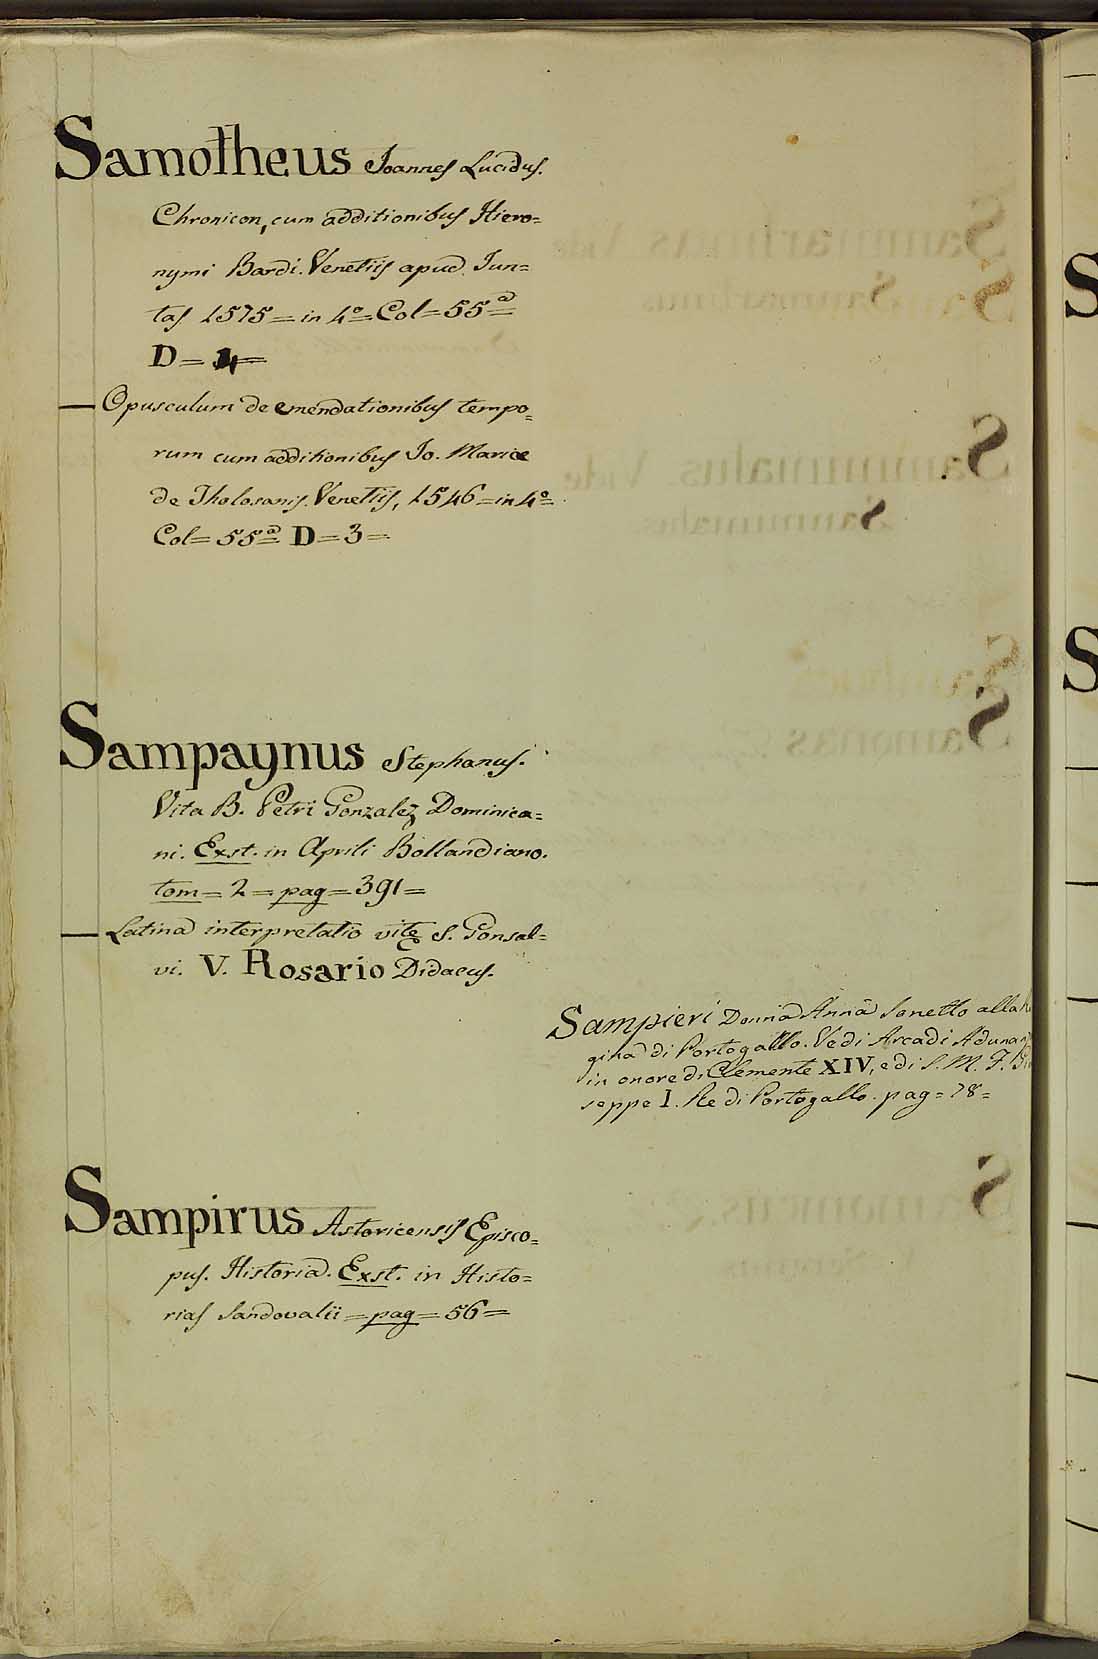 Samotheus Joannes Lucidus.
Chronicon, cum additionibus Hiero=
nymi Bardi. Venetiis apud Jun=
tas 1575 = in 4º = Col = 55ª =
D = 4 =
— Opusculum de emendationibus tempo=
rum cum additionibus Jo. Mariæ
de Tholosanis. Venetiis, 1546 = in 4º =
Col = 55ª = D = 3 =
Sampaynus Stephanus.
Vita B. Petri Gonzalez Dominica=
ni. Exst. in Aprili Bollandiano.
tom = 2 = pag = 391 =
— Latina interpretatio vitę S. Gonsal=
vi. V. Rosario Didacus.
Sampieri Donna Anna Sonetto alla
gina di Portogallo. Vedi Arcadi Adunan
in onore di Clemente XIV, e di S. M. F.
seppe I. Re di Portogallo. pag = 78 =
Sampirus Astoricensis Episco=
pus. Historia. Exst. in Histo=
rias Sandovalii = pag = 56 =